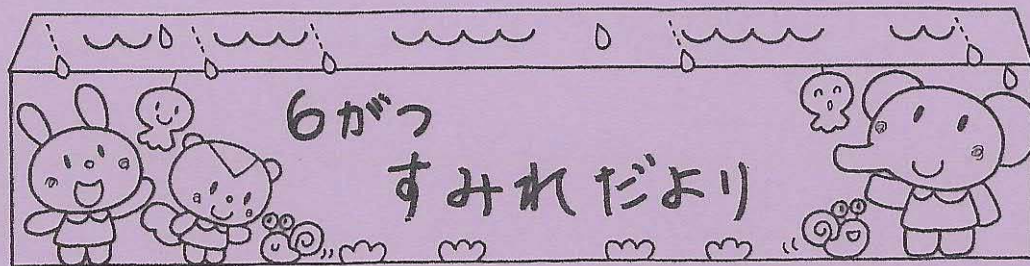 6がつ
すみれだより